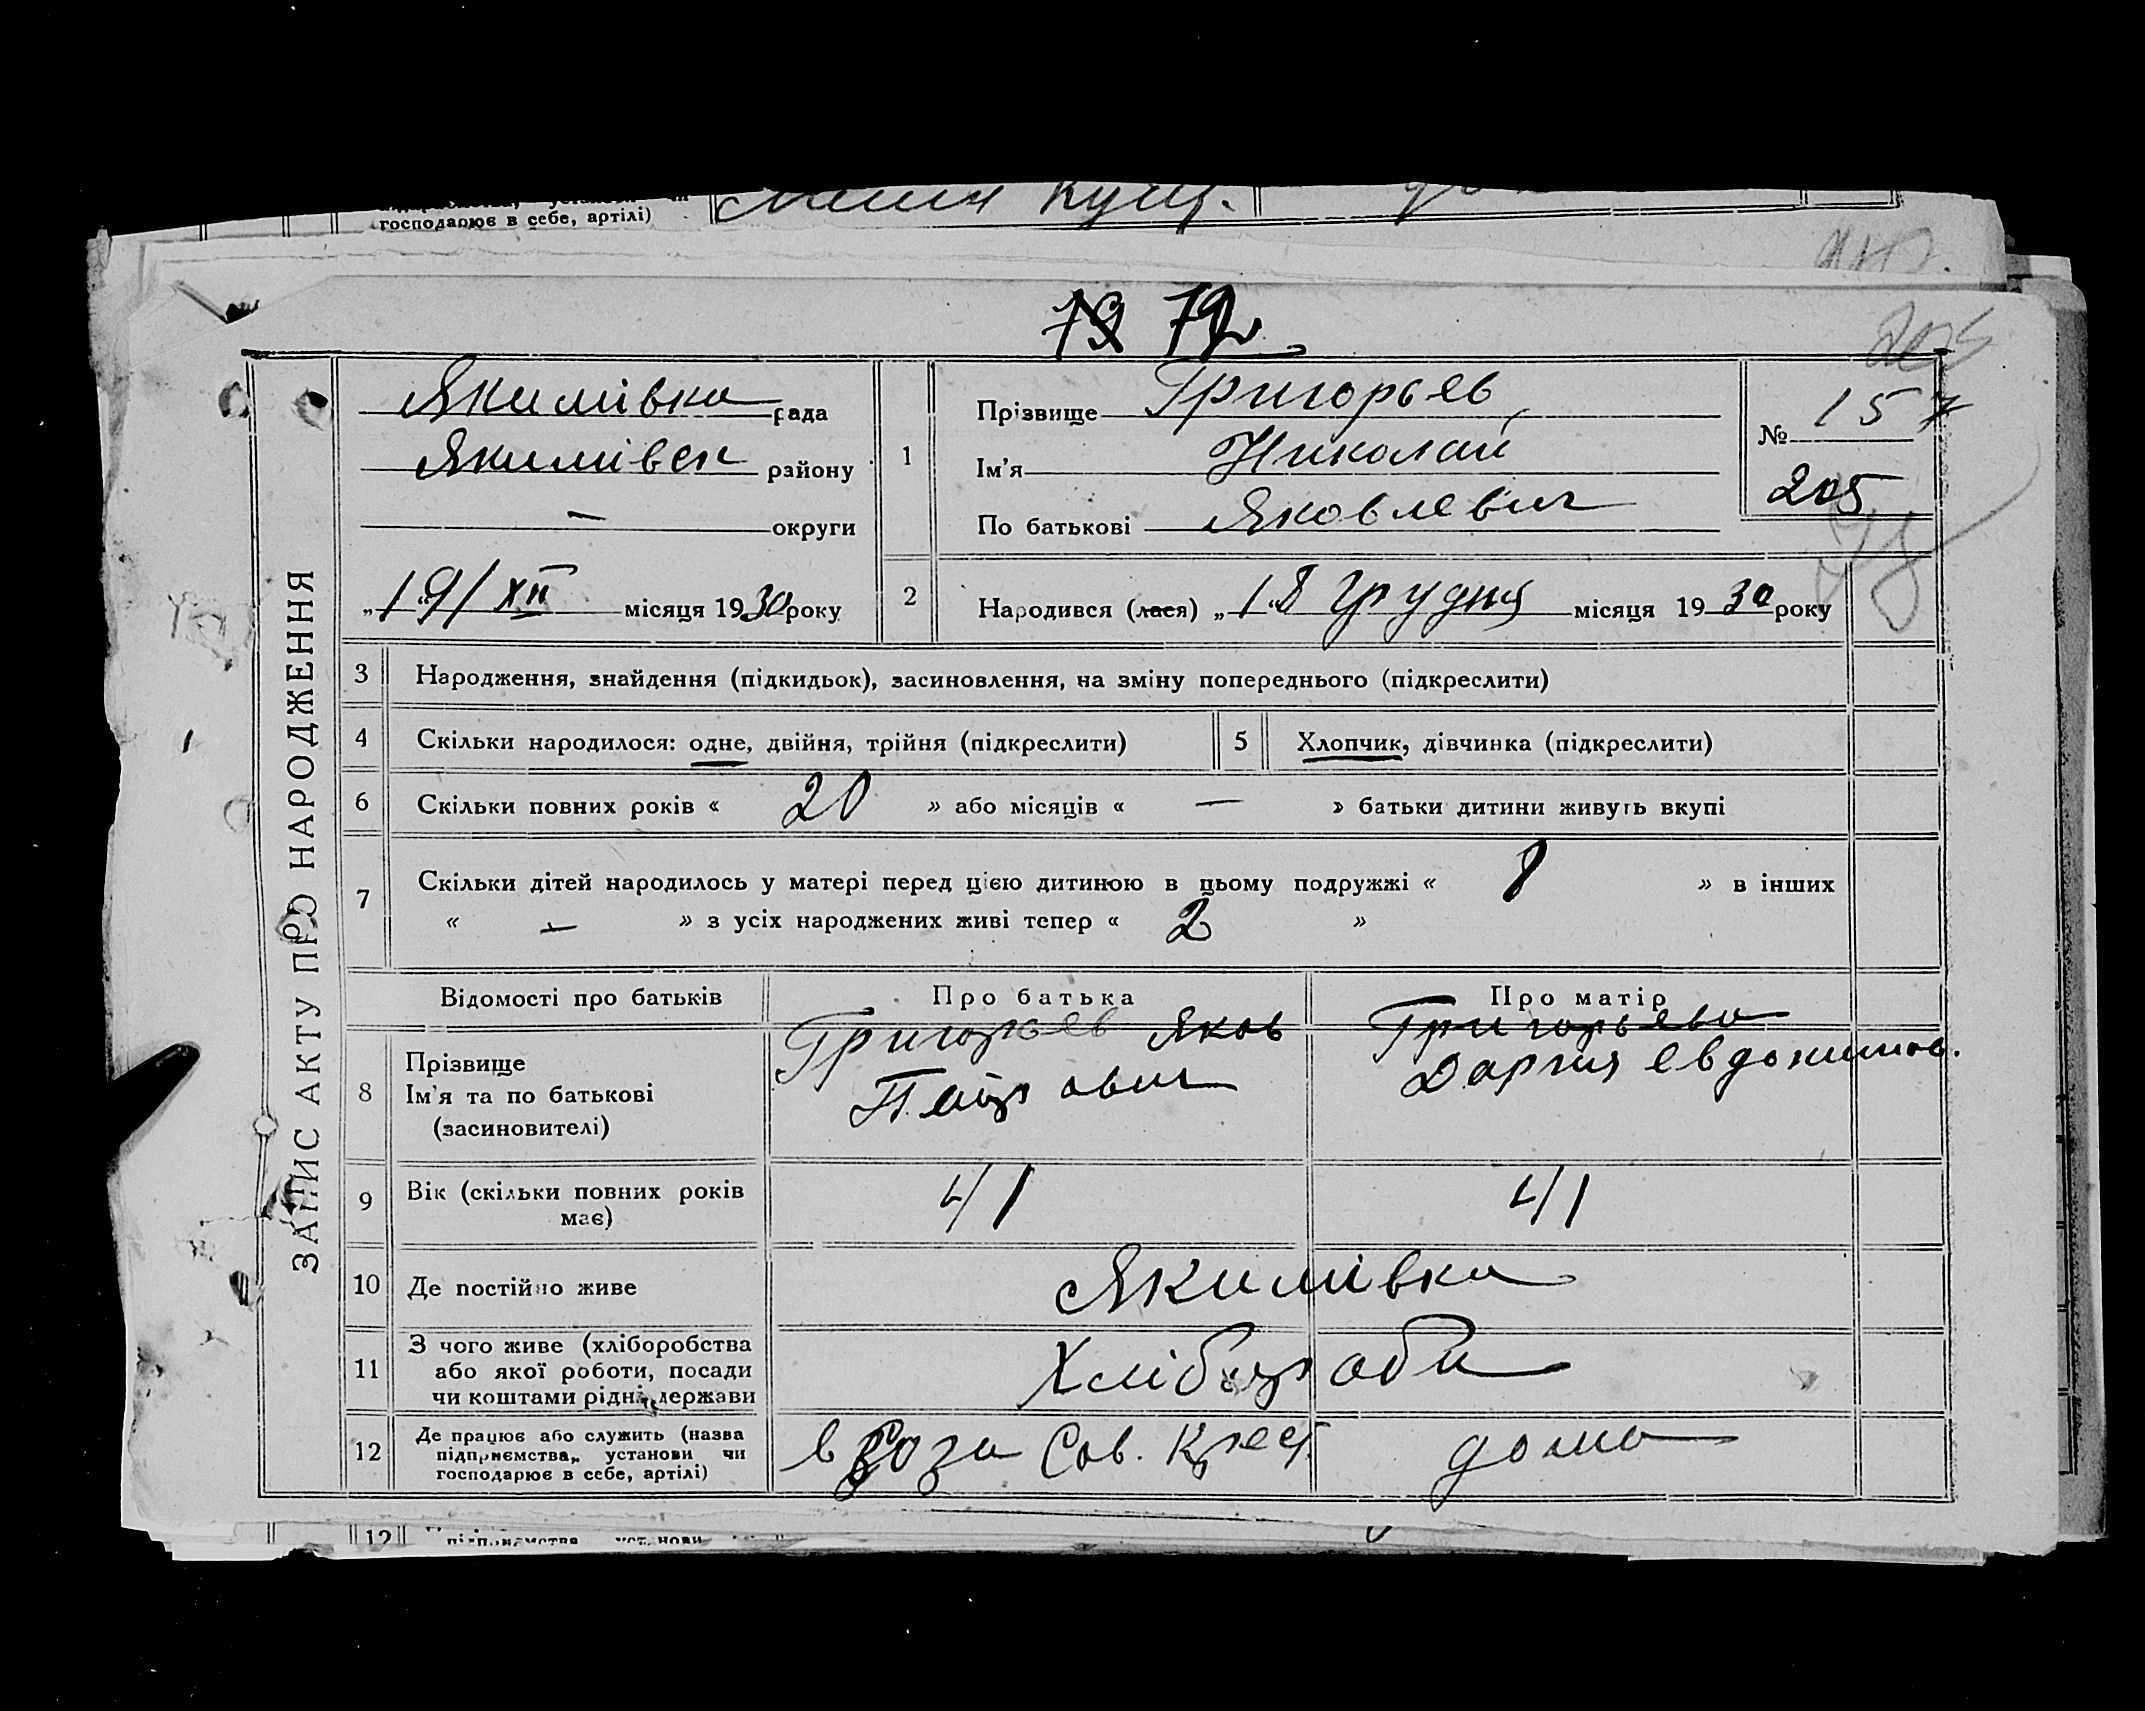 господарює в себе, артілі)
72.
Якимівка рада
Якимівск району
— округи
„19/XII місяця 1930 року
1
Прізвище Григорьев
Ім’я Николай
По батькові Яковлевич
№ 157
205
2
Народився (лася) „18 грудня місяця 1930 року
ЗАПИС АКТУ ПРО НАРОДЖЕННЯ
3 Народження, знайдення (підкидьок), засиновлення, на зміну попереднього (підкреслити)
4 Скільки народилося: одне, двійня, трійня (підкреслити) 5 Хлопчик, дівчинка (підкреслити)
6 Скільки повних років « 20 » або місяців « — » батьки дитини живуть вкупі
7 Скільки дітей народилось у матері перед цією дитиною в цьому подружжі « 8 » в інших
« — » з усіх народжених живі тепер « 2 »
Відомості про батьків Про батька Про матір
8 Прізвище
Ім’я та по батькові
(засиновителі)
Григорьев Яков
Петрович
Григорьева
Дария Евдокимов.
9 Вік (скільки повних років
має)
41 41
10 Де постійно живе Якимівка
11 З чого живе (хліборобства
або якої роботи, посади
чи коштами рідні, держави
Хлібороби
12 Де працює або служить (назва
підприємства, установи чи
господарює в себе, артілі)
в Сов. Крест. дома
12 підприємства установи